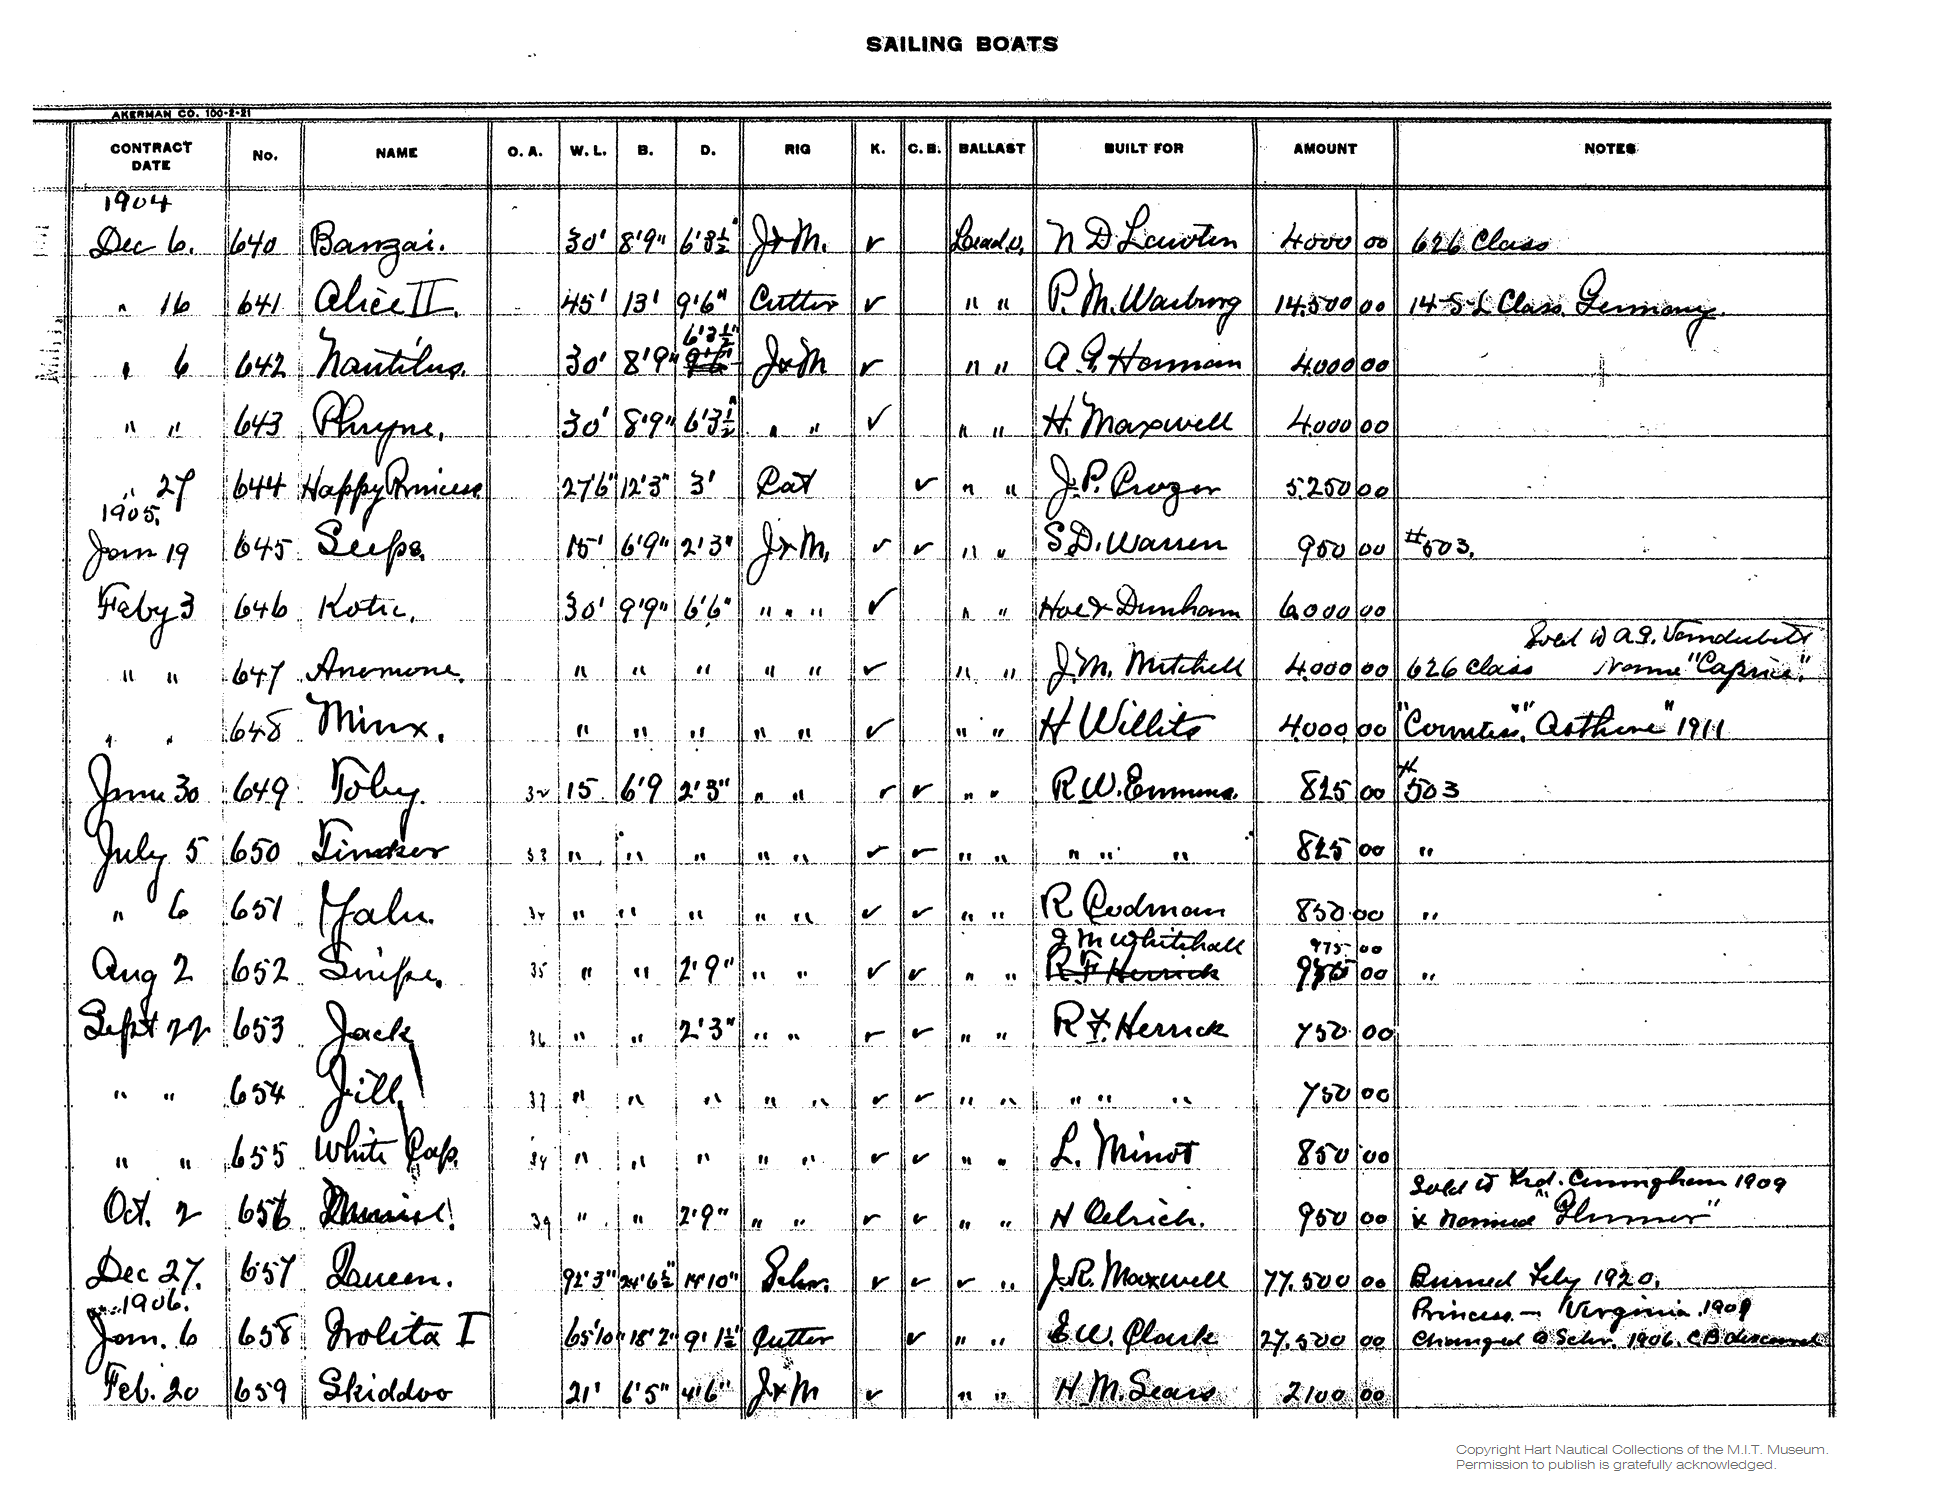 SAILING BOATS
AKERMAN CO. 100-2-21
CONTRACT DATE No. NAME O. A. W. L. B. D. RIG K. C. B. BALLAST BUILT FOR AMOUNT NOTES
1904
Dec 6. 640 Banzai. 30' 8'9" 6'3½" J&M. ✓ Lead o, N D Lawton 4000 00 626 Class
" 16 641 Alice II. 45' 13' 9'6" Cutter ✓ " " P. M. Warburg 14,500 00 14-S-L Class. Germany.
6'3½"
" 6 642 Nautilus. 30' 8'9" 9'6" J&M ✓ " " A G. Hanan 4000 00
" " 643 Phryne. 30' 8'9" 6'3½" " " ✓ " " H. Maxwell 4000 00
" 27 644 Happy Princess 27'6" 12'3" 3' Cat ✓ " " J. P. Crozer 5250 00
1905.
Jan 19 645 15' 6'9" 2'3" J&M. ✓ ✓ " " S. D. Warren 950 00 #503.
Feby 3 646 Kotic. 30' 9'9" 6'6" " " " ✓ " " Hoe & Dunham 6000 00
Sold to A. G. Vanderbilt
" " 647 Anemone. " " " " " ✓ " " J. M. Mitchell 4000 00 626 Class Name "Caprice".
" " 648 Minx. " " " " " ✓ " " H Willits 4000 00 "Countess" 1911
June 30 649 Toby. 32 15 6'9 2'3" " " ✓ ✓ " " R. W. Emmons. 825 00 #503
July 5 650 Tinker 33 " " " " " ✓ ✓ " " " " " 825 00 "
" 6 651 Yalu. 34 " " " " " ✓ ✓ " " R Rodman 850 00 "
J M Whitehall 975 00
Aug 2 652 Snipe. 35 " " 2'9" " " ✓ ✓ " " R. F Herrick 00 "
Sept 22 653 Jack 36 " " 2'3" " " ✓ ✓ " " R. F. Herrick 750 00
" " 654 Jill. 37 " " " " " ✓ ✓ " " " " " 750 00
" " 655 White Cap. " " " " " ✓ ✓ " " L. Minot 850 00
Sold to Frd. Cunningham 1909
Oct. 2 656 39 " " 2'9" " " ✓ ✓ " " H Oelrich. 950 00 & named
Dec 27. 657 Queen. 92'3" 24'6½" 14'10" Schr. ✓ ✓ ✓ " J. R. Maxwell 77,500 00 Burned Feby 1920.
1906. Princess – Virginia. 1909
Jan. 6 658 Irolita I 65'10" 18'2" 9'1½" Cutter ✓ " " E W. Clark 27,500 00 Changed to Schr. 1906. C.B discard
Feb. 20 659 Skiddoo 21' 6'5" 4'6" J&M ✓ " " H. M. Sears 2100 00
Copyright Hart Nautical Collections of the M.I.T. Museum.
Permission to publish is gratefully acknowledged.